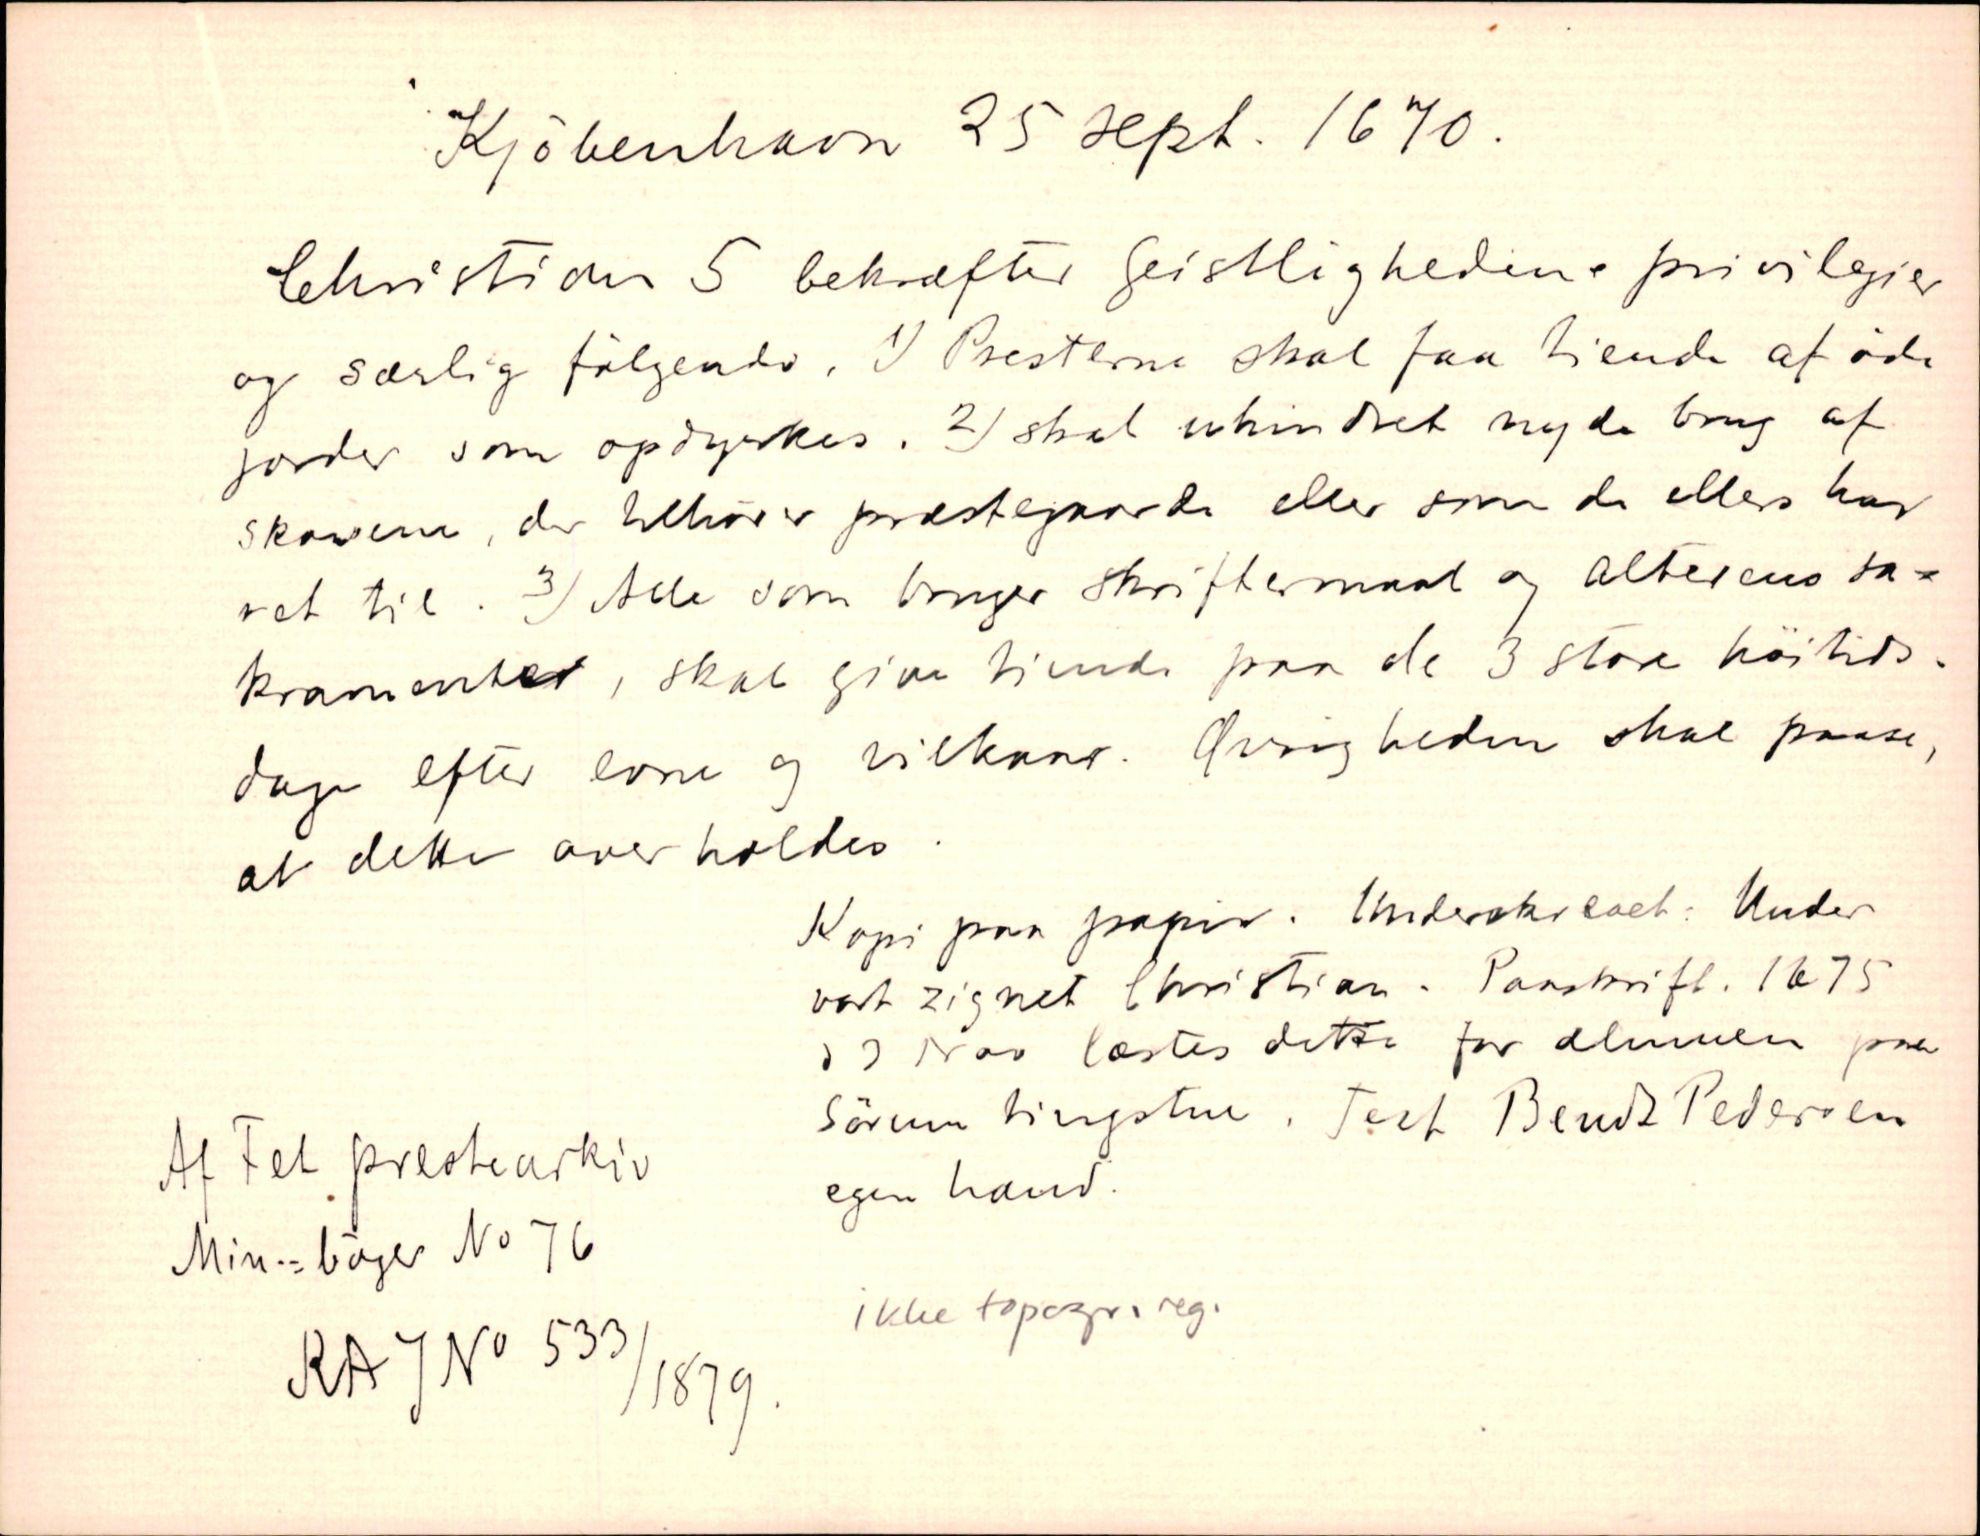 Kjöbenhavn 25 sept. 1670.
Christian 5 bekræfter Geistlighedens privilegier
og særlig fölgende. 1) Presterne skal faa tiende af öde
jorder som opdyrkes. 2) skal uhindret nyde brug af
skovene, der tilhörer præstegaarde eller som de ellers har
ret til. 3) Alle som bruger skriftermaal og alterens sa-
kramenter, skal give tiende paa de 3 store höitids-
dage efter evne og vilkaar. Øvrigheden skal paase,
at dette overholdes.
Kopi paa papir. Underskrevet: Under
vort zignet Christian. Paaskrift. 1675
Nov læstes dette for almuen paa
Sörum tingstue. Test Bendt Pedersen
egen haand.
Af Fet prestearkiv
Min.-böger No 76
RA J No 533/1879.
ikke topogr. reg.